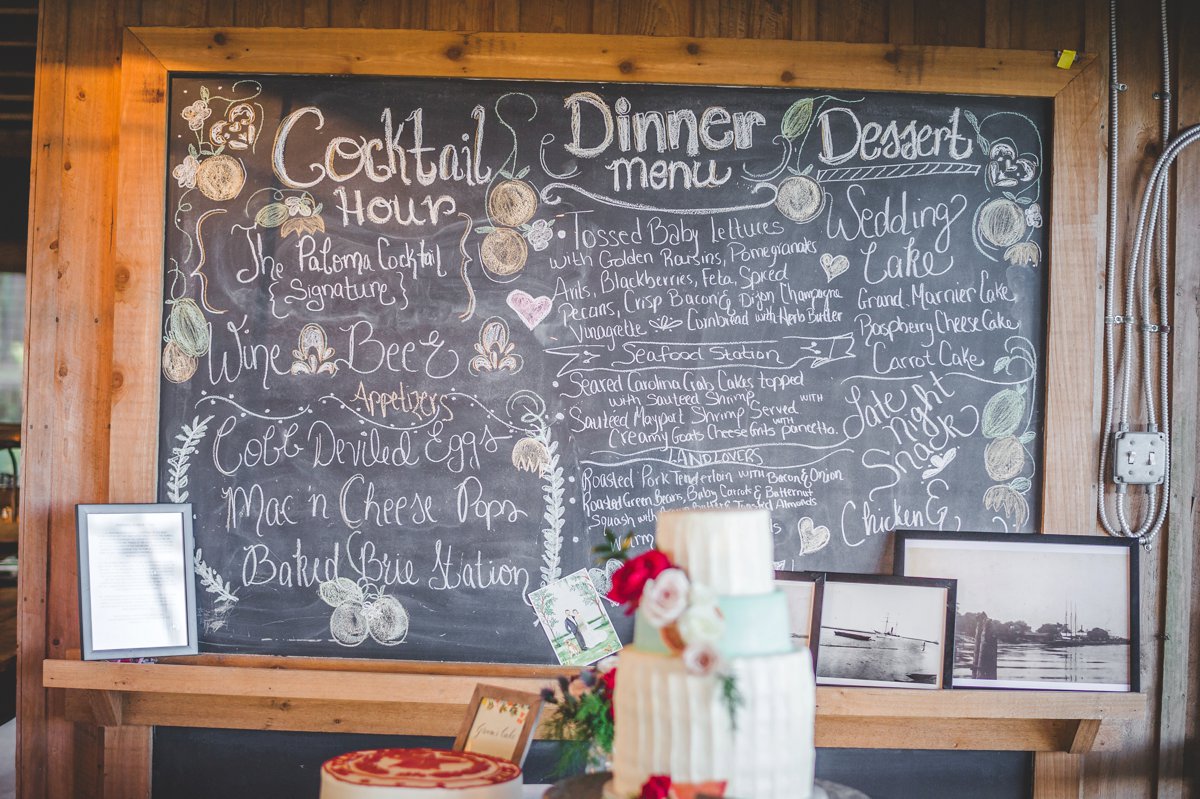 Cocktail
Hour
The Paloma Cocktail
{Signature}
Wine Beer
Appetizers
Cobb Deviled Eggs
Mac 'n Cheese Pops
Baked Brie Station
Dinner
menu
Tossed Baby Lettuces
with Golden Raisins, Pomegranates
Arils, Blackberries, Feta, Spiced
Pecans, Crisp Bacon & Dijon Champagne
Vinagrette Cornbread with Herb Butter
Seafood Station
Seared Carolina Crab Cakes topped
with Sauteed Shrimp
Sauteed Mayport Shrimp Served with
Creamy Goats Cheese Grits
LANDLOVERS
Roasted Pork Tenderloin with Bacon & Onion
Roasted Green Beans, Baby Carrots & Butternut
Squash with Toasted Almonds
Dessert
Wedding
Cake
Grand Marnier Cake
Raspberry Cheese Cake
Carrot Cake
Late
Night
Snack
Chicken &
Groom's Cake